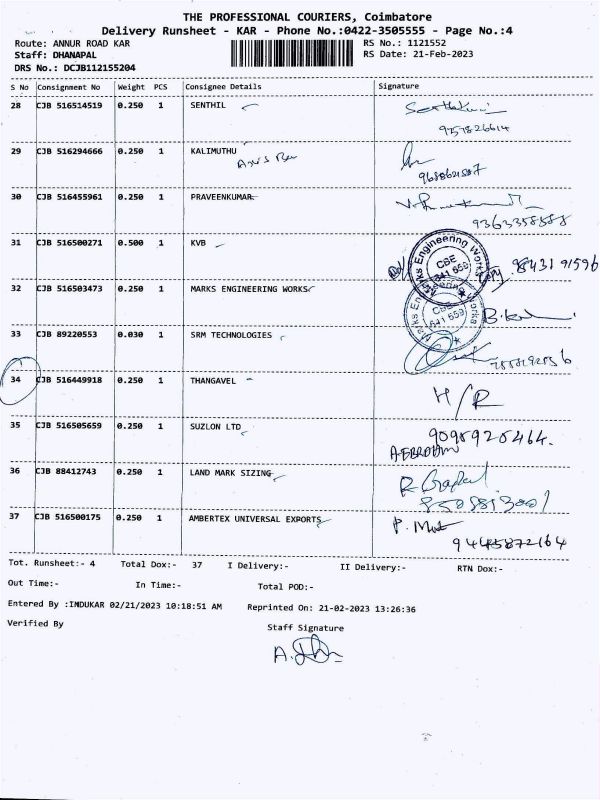 THE PROFESSIONAL COURIERS, Coimbatore
Delivery Runsheet - KAR - Phone No.:0422-3505555 - Page No.:4
Route: ANNUR ROAD KAR RS No.: 1121552
Staff: DHANAPAL RS Date: 21-Feb-2023
DRS No.: DCJB112155204
S No Consignment No Weight PCS Consignee Details Signature
28 CJB 516514519 0.250 1 SENTHIL
29 CJB 516294666 0.250 1 KALIMUTHU
30 CJB 516455961 0.250 1 PRAVEENKUMAR
9363358588
31 CJB 516500271 0.500 1 KVB
Marks Engineering Works
CBE
641 653
98431 91596
32 CJB 516503473 0.250 1 MARKS ENGINEERING WORKS
Marks Engineering Works
CBE
641 653
33 CJB 89220553 0.030 1 SRM TECHNOLOGIES
34 CJB 516449918 0.250 1 THANGAVEL
H/R
35 CJB 516505659 0.250 1 SUZLON LTD
9095925464.
36 CJB 88412743 0.250 1 LAND MARK SIZING
37 CJB 516500175 0.250 1 AMBERTEX UNIVERSAL EXPORTS
9445872164
Tot. Runsheet:- 4 Total Dox:- 37 I Delivery:- II Delivery:- RTN Dox:-
Out Time:- In Time:- Total POD:-
Entered By :INDUKAR 02/21/2023 10:18:51 AM Reprinted On: 21-02-2023 13:26:36
Verified By Staff Signature